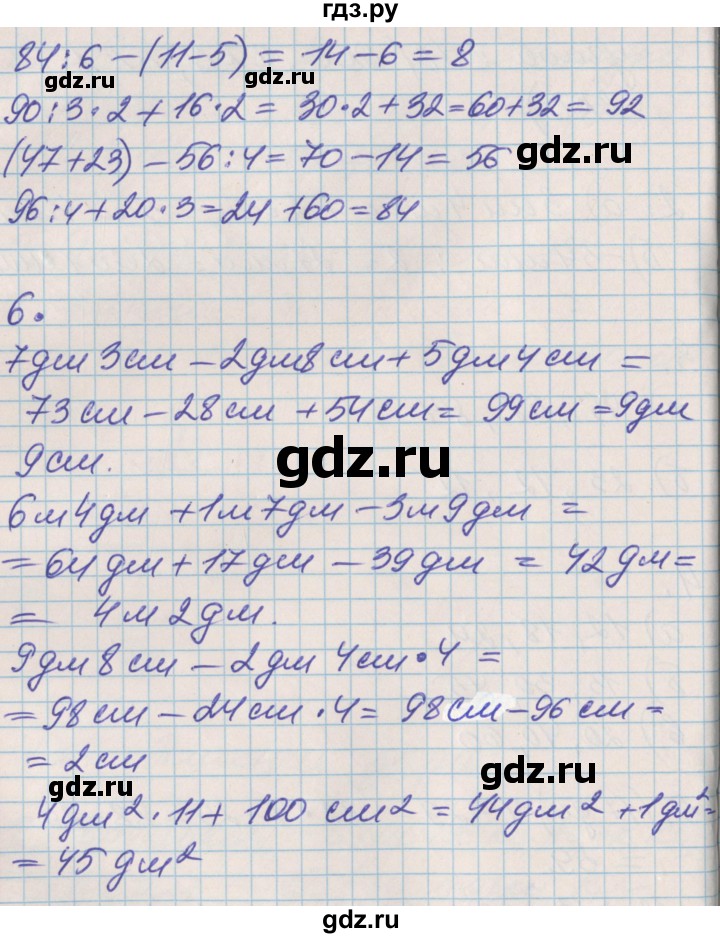 гдз.ру
84:6-(11-5) = 14-6 = 8
gdz.ru gdz.ru
90:3·2+16·2= 30·2+32=60+32= 92
(47+23)-56:4=70-14=56
gdz.ru
96:4+20·3=24+60=84
6.
7дм 3см - 2дм 8см + 5дм 4см =
73см - 28см + 54см = 99см = 9дм
9см.
gdz.ru
6м 4дм + 1м 7дм - 3м 9дм =
= 64дм + 17дм - 39дм = 42дм =
= 4м 2дм.
9дм 8см - 2дм 4см·4 =
= 98см - 24см·4 = 98см - 96см =
= 2см
gdz.ru
gdz.ru
4дм²·11 + 100 см² = 44дм² + 1дм² =
= 45 дм²
gdz.ru